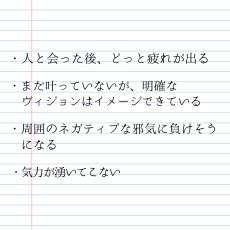 ・人と会った後、どっと疲れが出る
・まだ叶っていないが、明確な
ヴィジョンはイメージできている
・周囲のネガティブな邪気に負けそう
になる
・気力が湧いてこない